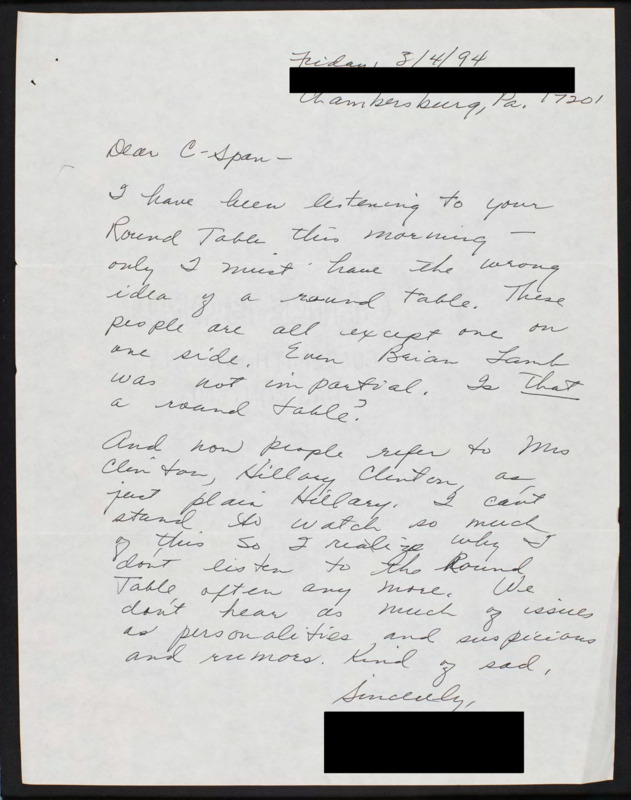 Friday, 3/4/94
Chambersburg, Pa. 17201
Dear C-Span—
I have been listening to your
Round Table this morning—
only I must have the wrong
idea of a round table. These
people are all except one on
one side. Even Brian Lamb
was not impartial. Is That
a round table?
And now people refer to Mrs
Clinton, Hillary Clinton, as
just plain Hillary. I can't
stand to watch so much
of this so I realize why I
don't listen to the Round
Table often any more. We
don't hear as much of issues
as personalities and suspicions
and rumors. Kind of sad.
Sincerely,